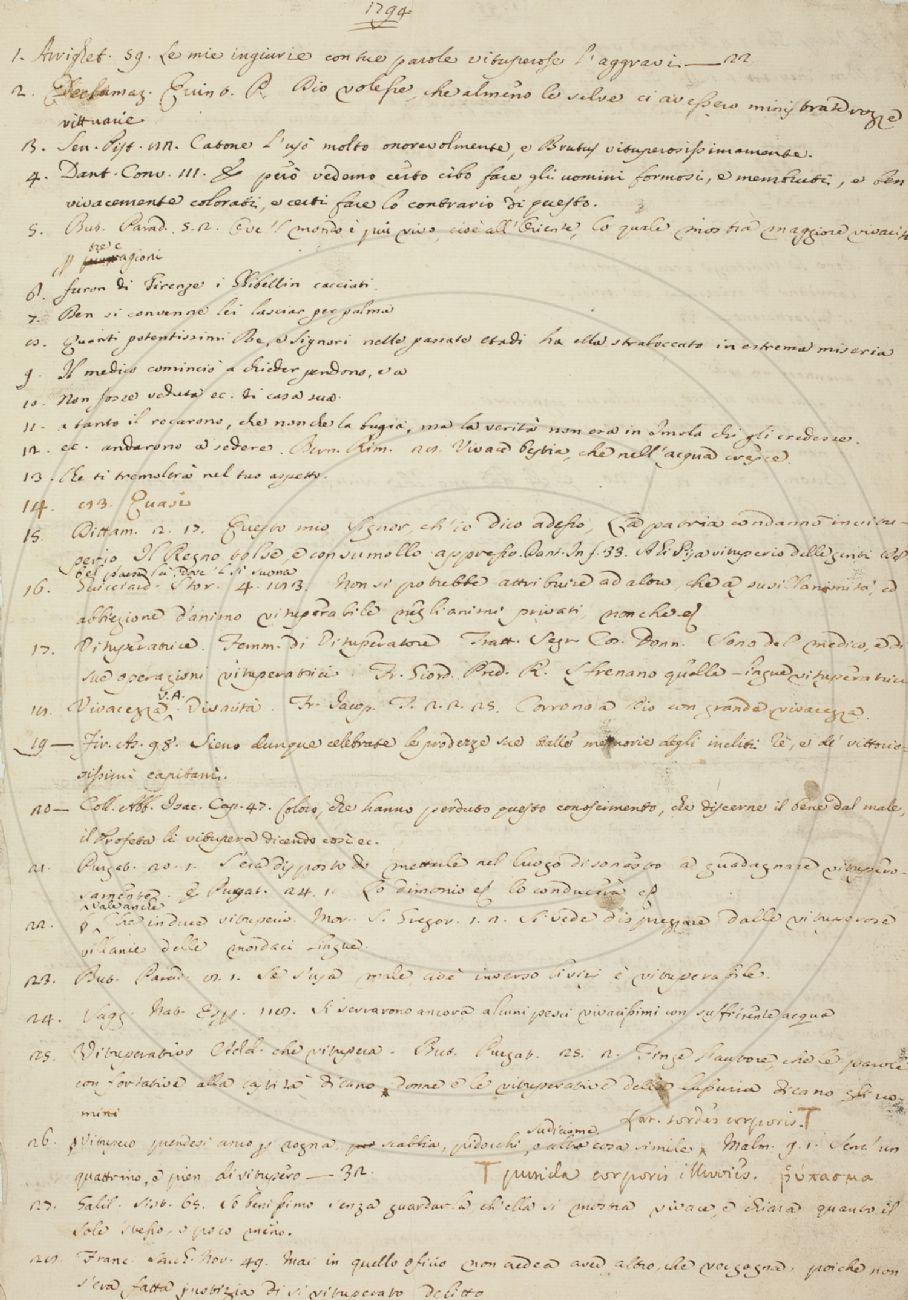 1794
1. Arrighet. 59. Le mie ingiurie con tue parole vituperose l'aggravi. — 22
2. Declamaz. Quint. P. Dio volesse, che almeno le selve ci avessero ministrate rozze
vittuarie
3. Sen. Pist. Catone l'usò molto onorevolmente, e Brutus vituperosissimamente.
4. Dant. Conv. 111. però vedemo certo cibo fare gli uomini formosi, e membruti, e ben
vivacemente colorati, e certi fare lo contrario di questo.
5. But. Parad. 5. 2. Ove 'l mondo è più vivo, cioè all'Oriente, lo quale mostra maggiore vivacità
p tre ragioni
6. furon di Firenze i Ghibellin cacciati.
7. Ben si convenne lei lasciar per palma
8. Quanti potentissimi Re, e Signori nelle passate etadi ha ella straboccato in estrema miseria
9. Il medico cominciò a chieder perdono, e a
10. Non fosse veduta ec. di casa sua.
11. a tanto il recarono, che non che la bugia, ma la verità non era in Imola chi gli credesse.
12. ec. andarono a sedere. Bern. Rim. Vivace bestia, che nell'acqua cresce.
13. Che ti tremolerà nel tuo aspetto.
14. Quasi
15. Dittam. 2. 17. Questo mio Signor, ch'io dico adesso, La patria condannò in vitu-
perio Il Regno tolse e consumollo appresso. Dant. Inf. 33. Ahi Pisa vituperio delle genti Del
bel paese là dove 'l sì suona
16. Guicciard. Stor. 4. Non si potrebbe attribuire ad altro che a pusillanimità, ed
abbiezione d'animo vituperabile negli animi privati, non che
17. Vituperatrice. Femm. di Vituperatore Tratt. Segr. Cos. Donn. Sono del medico, e di
sue operazioni vituperatrici. Fr. Giord. Pred. R. Sfrenano quelle lingue vituperatrici
18. Vivacezza V.A. Vivacità. Fr. Jacop. T. 2. 2. 25. Corrono a Dio con grande vivacezza.
19 — Fir. As. 98. Sieno dunque celebrate le prodezze sue dalle memorie degli incliti Rè, e de' vittorio-
sissimi capitani.
20 — Coll. Abb. Isac. Cap. 47. Coloro, che hanno perduto questo conoscimento, che discerne il bene dal male,
il Profeta li vitupera dicendo così ec.
21. Purgat. 20. 1. S'era disposto di metterle nel luogo disonesto a guadagnare vitupero-
samente. Purgat. 24. 1. Lo dimonio lo conducerà
22. p vale anche Che induce vituperio. Mor. S. Gregor. 1. 2. Si vede dispregiare dalle vituperose
villanie delle mordaci lingue.
23. But. Parad. 1. Se s'usa male, cioè inverso li vizj è vituperabile.
24. Sagg. Nat. Esp. 118. Si serrarono ancora alcuni pesci vivacissimi con sufficiente acqua
25. Vituperativo Add. che vitupera. But. Purgat. 25. 2. Finge l'autore, che le parole
confortative alla castità dicano donne e le vituperative della lussuria dicano gli uo-
mini
Lat. sordes corporis. T
26. p Vituperio prendesi anco p rogna scabbia, pidocchi, sudiciume, o altra cosa simile. Malm. 9. 1. Senz'un
quattrino, e pien di vitupero — 32. T putrida corporis illuvies. ῥύπασμα
27. Galil. Sist. 65. So benissimo senza guardarla ch'ella si mostra vivace, e chiara quanto il
Sole stesso, o poco meno.
28. Franc. Sacch. Nov. 49. Mai in quello oficio non aedea avea altro, che vergogna, poichè non
s'era fatta justizia di sì vituperato delitto